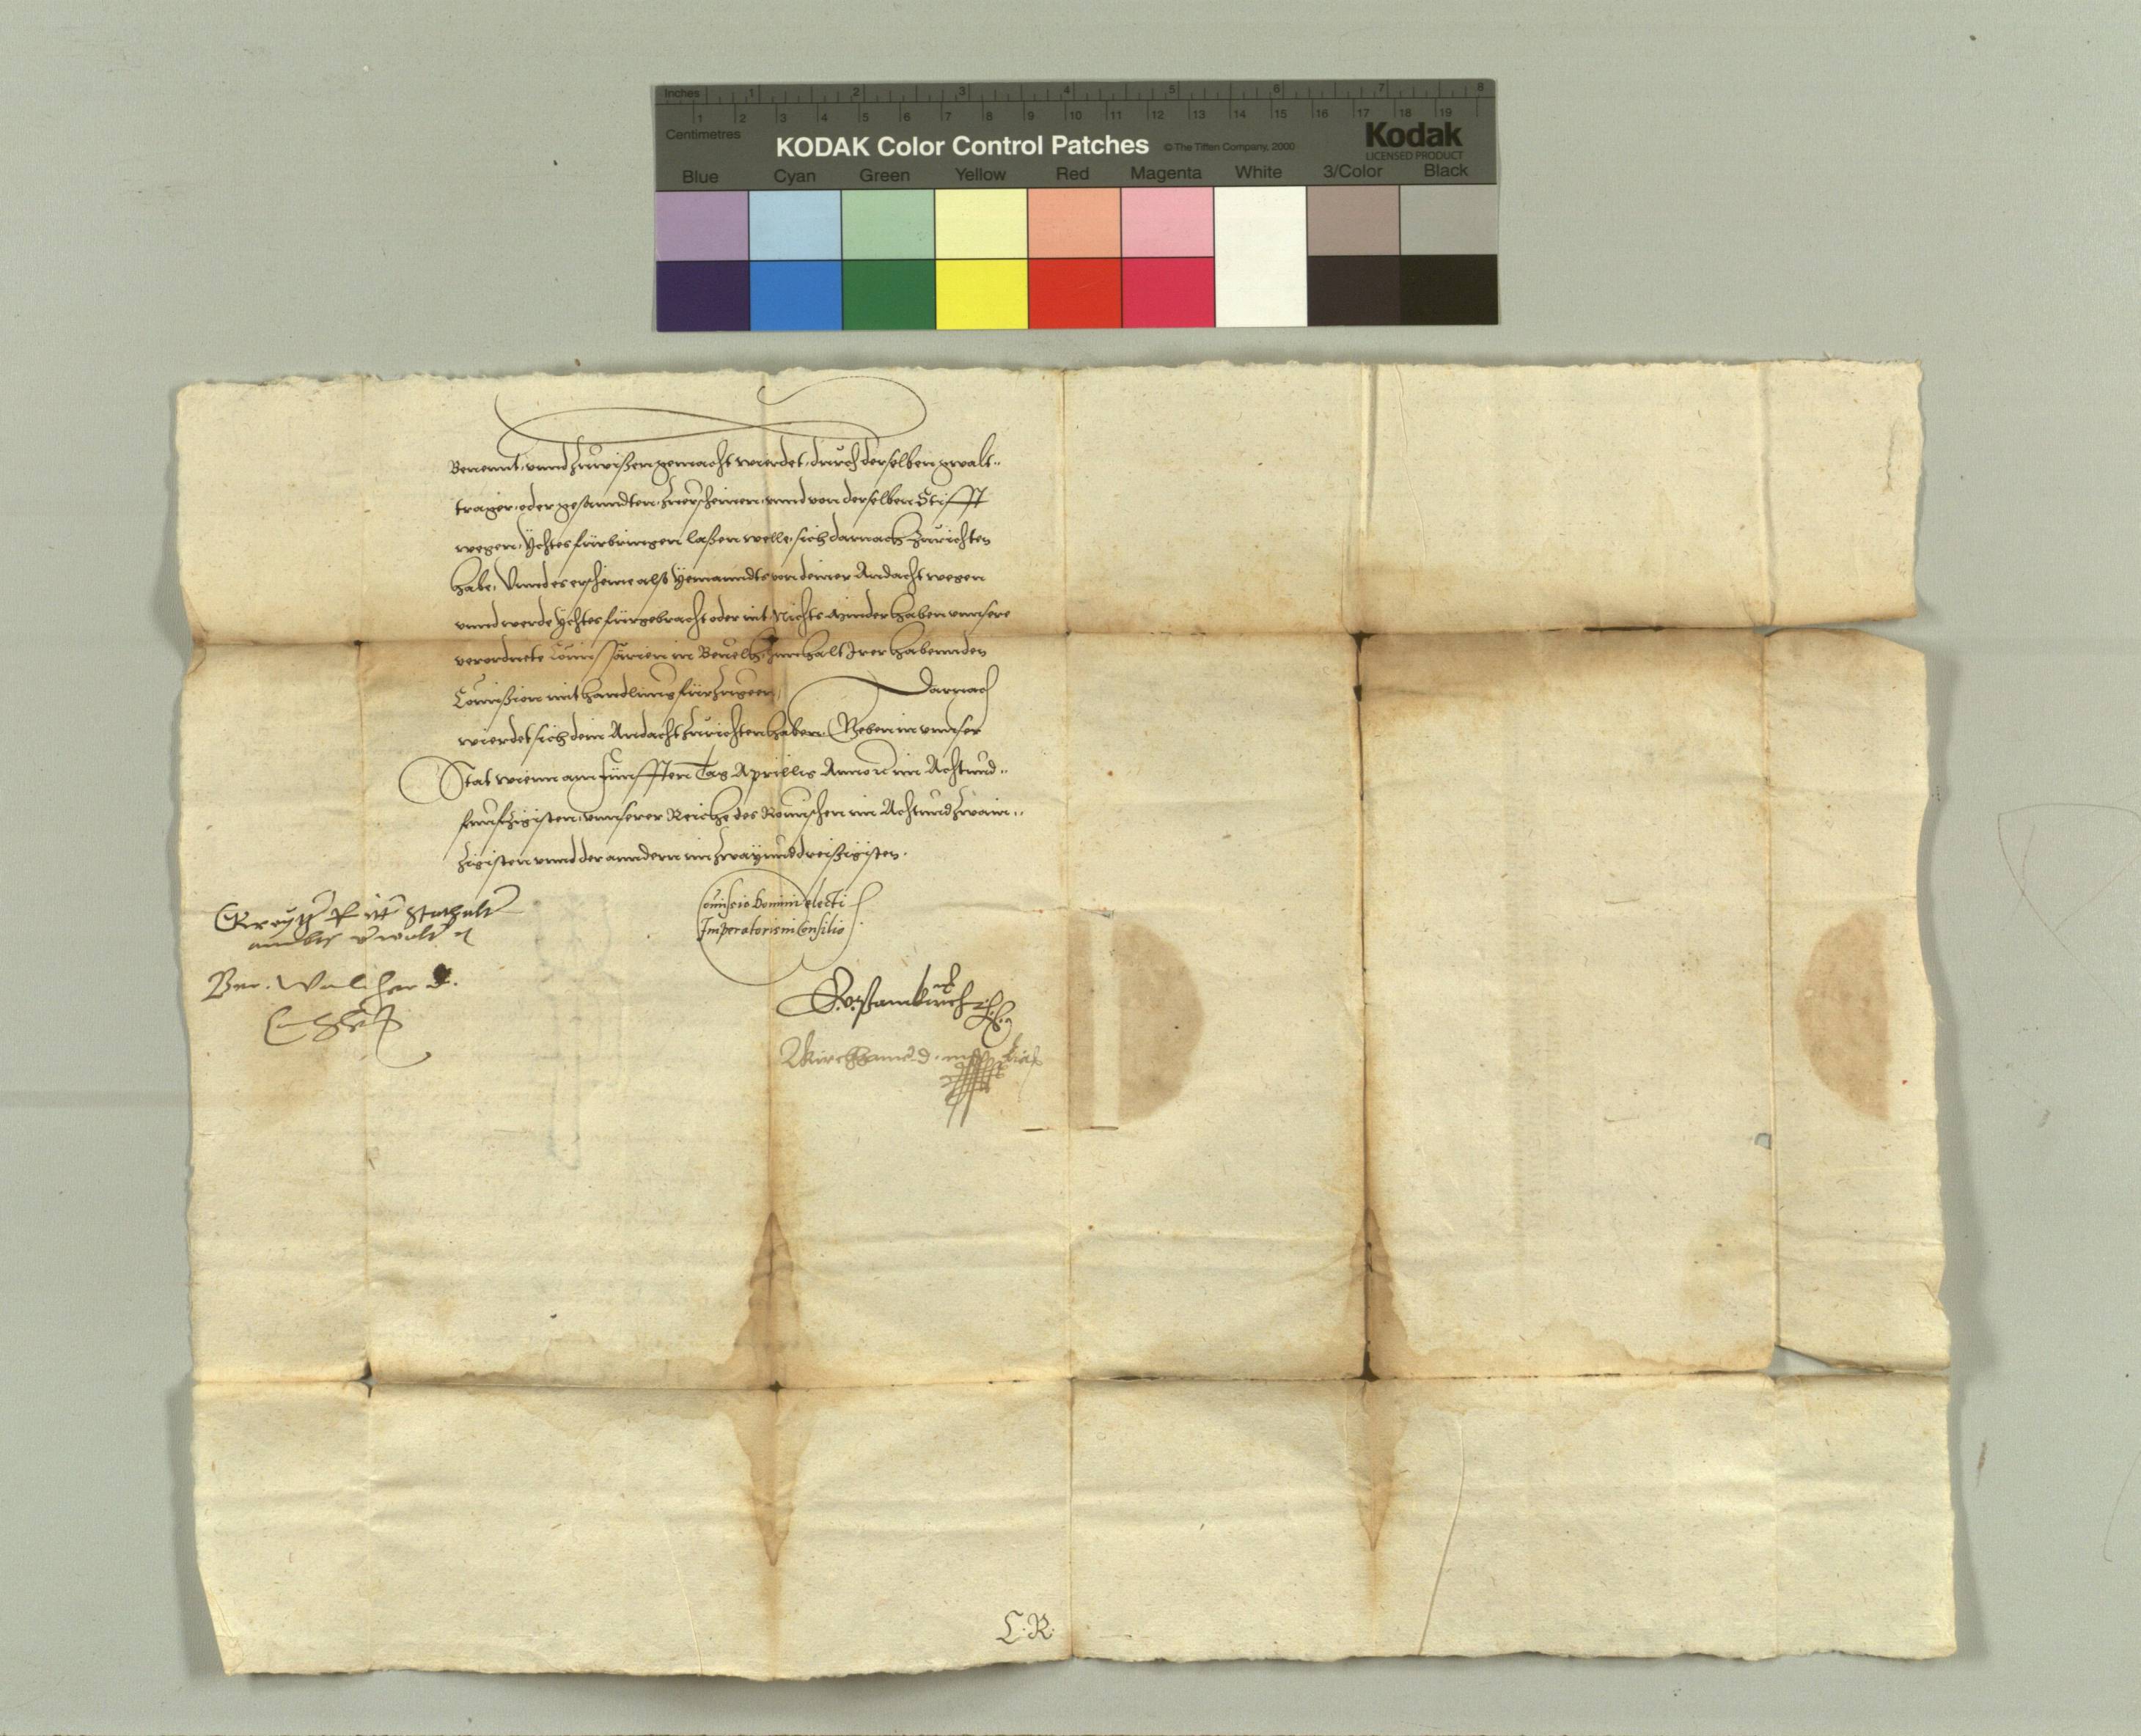 Inches 1 2 3 4 5 6 7 8
1 2 3 4 5 6 7 8 9 10 11 12 13 14 15 16 17 18 19
Centimetres
KODAK Color Control Patches © The Tiffen Company, 2000 Kodak
LICENSED PRODUCT
Blue Cyan Green Yellow Red Magenta White 3/Color Black
Benennt, unnd zuwißen gemacht wierdet, durch derselben gwalt-
trager, oder gesanndten, zuerscheinen, unnd von derselben Stifft
wegen, Ychtes fürbringen laßen welle, sich darnach zurichten
habe, Unnd es erscheine also Yemanndts von deiner Andacht wegen
unnd werde Ychtes fürgebracht oder nit, Nichts minder haben unnsere
verordnete Comissarien in Bevelh, Innhalt Irer habennden
Comißion mit handlung fürzugeen, Darnach
wierdet sich dein Andacht zurichten haben. Geben in unnser
Stat Wienn am Fünfften Tag Aprillis Anno etc. im Achtund-
funfzigisten, unnserer Reiche des Römischen im Achtundzwain-
zigisten unnd der anndern im zwayunddreißigisten.
Comissio Domini electi
Imperatoris in Consilio
Stathalt
Ber. Walther D.
L. R.